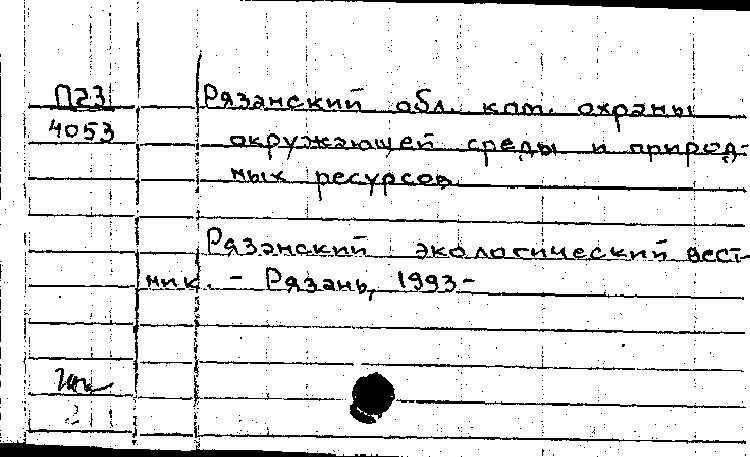 П23
4053
Рязанский обл. ком. охраны
окружающей среды и природ-
ных ресурсов
Рязанский экологический вест-
ник. – Рязань, 1993–
2